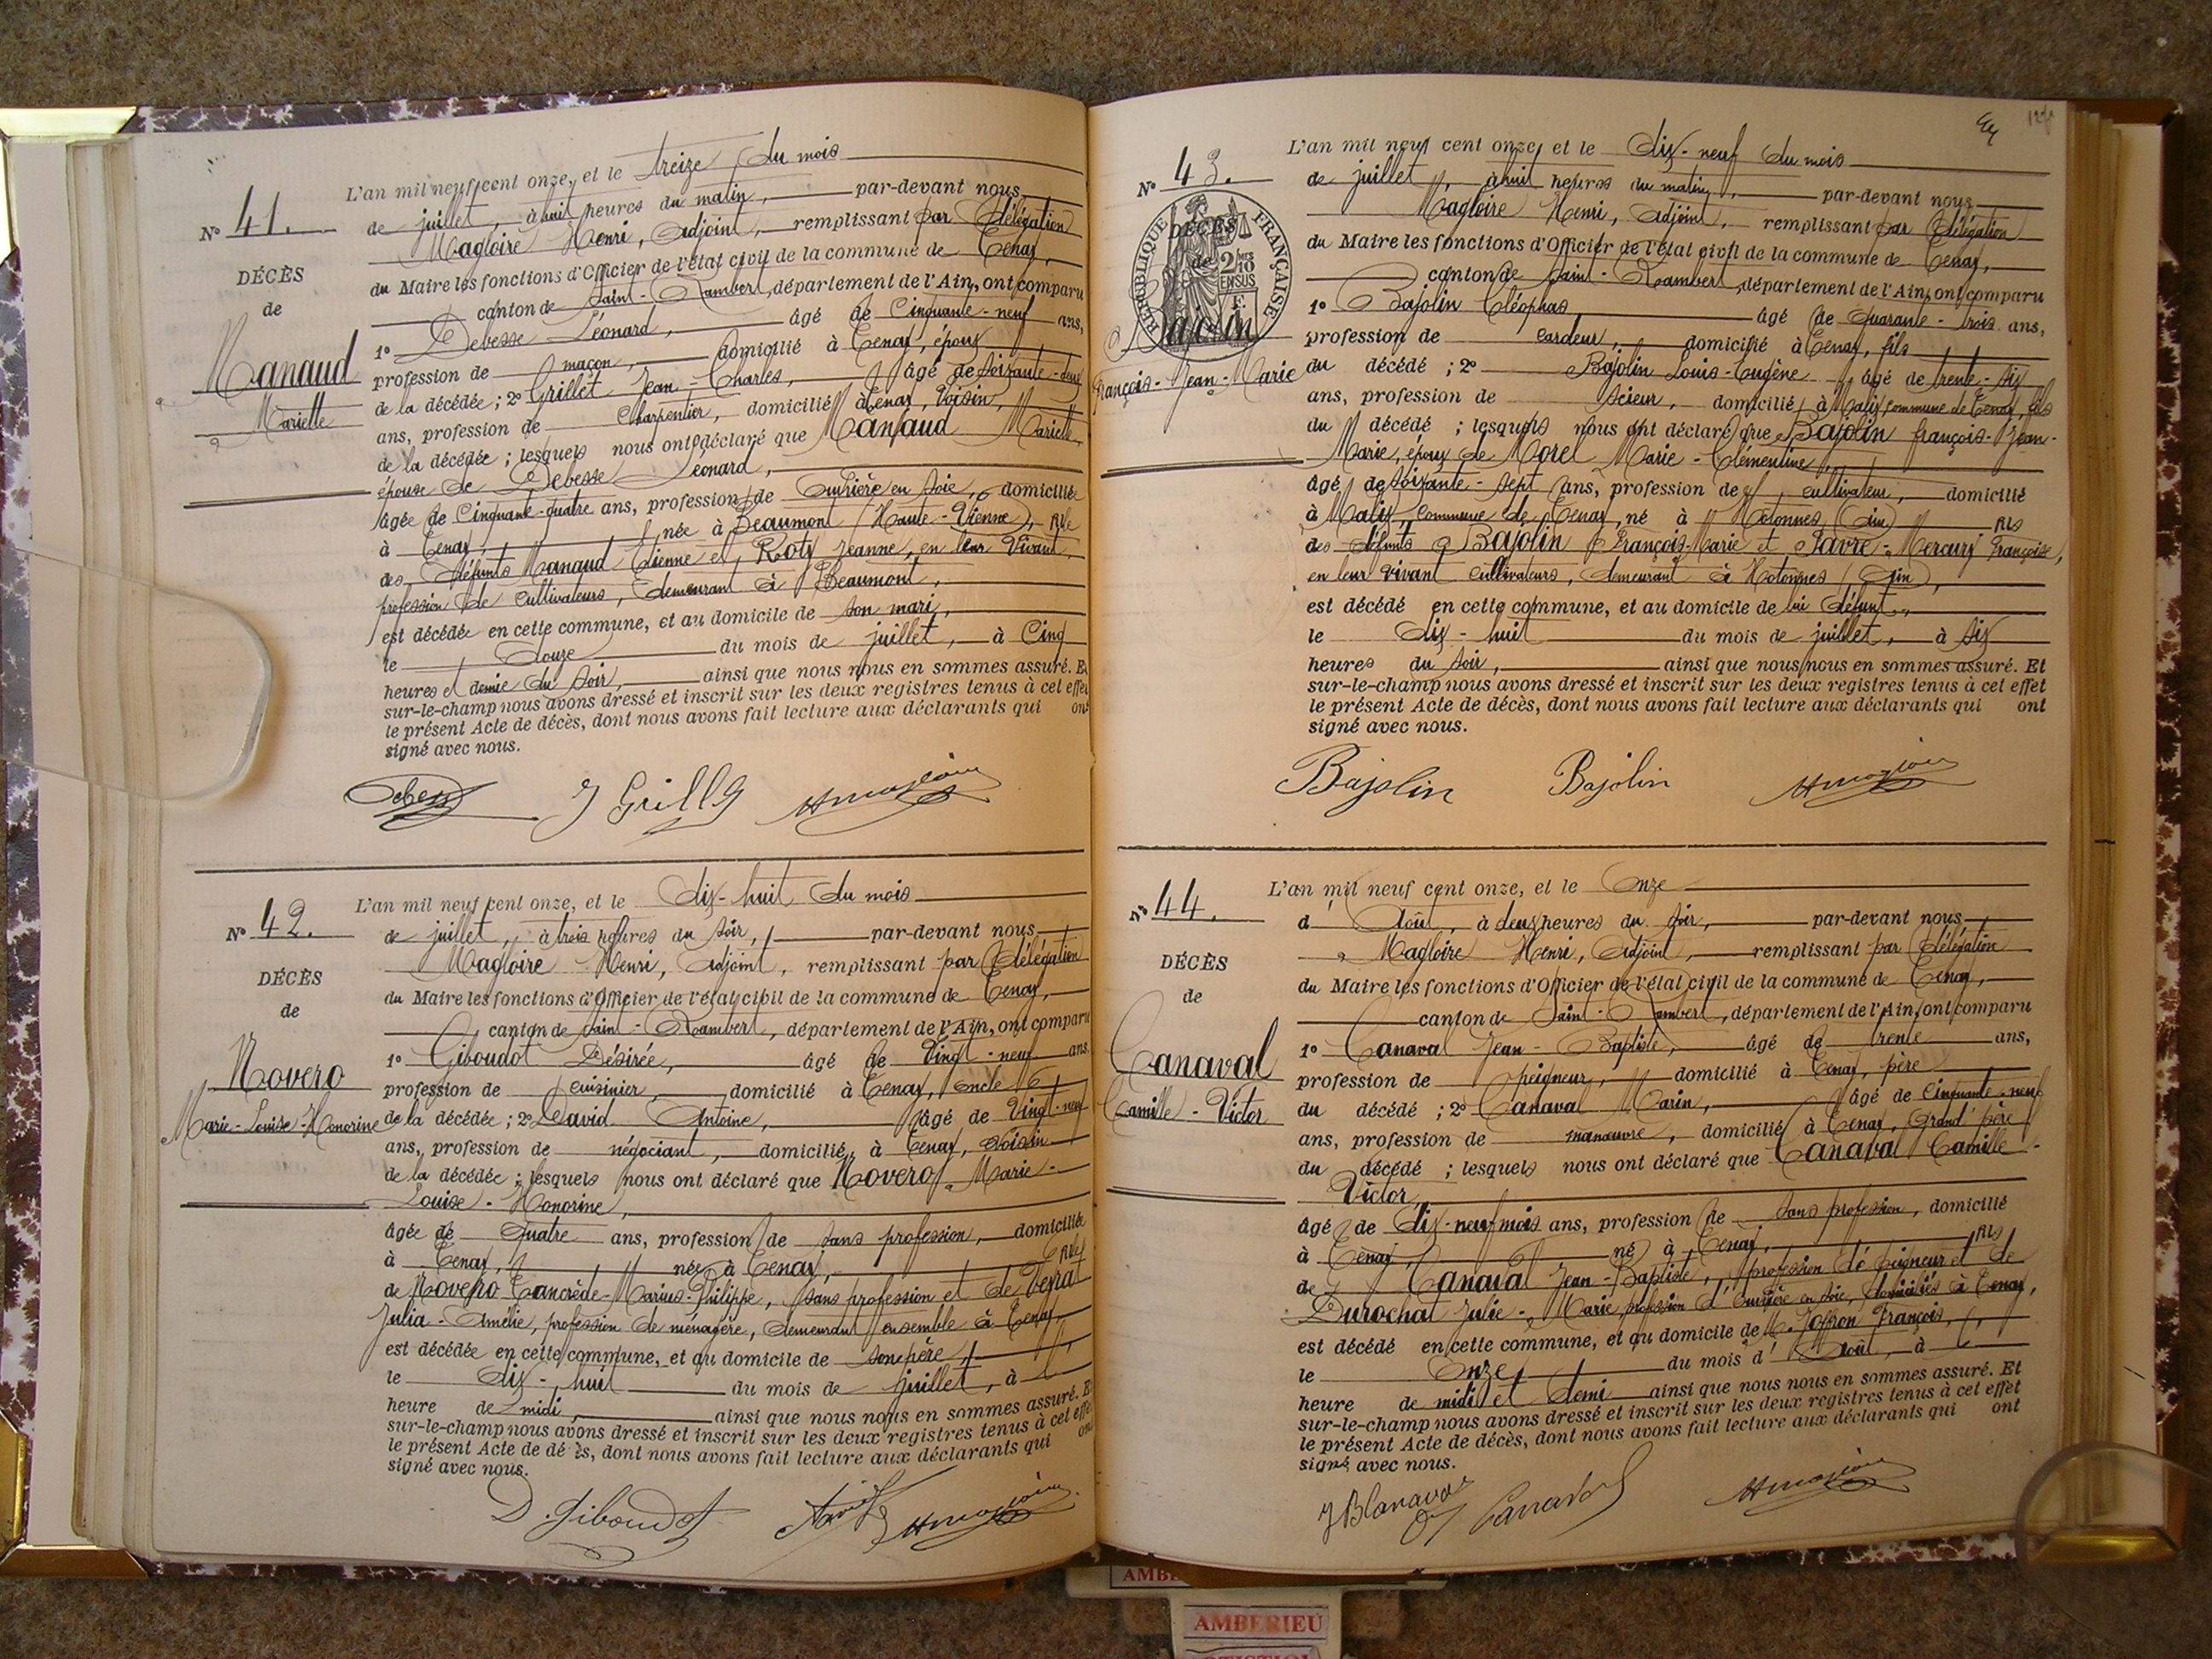 L'an mil neuf cent onze, et le treize du mois
de juillet, à huit heures du matin, par-devant nous
Nº 41.
Magloire Henri, Adjoint, remplissant par Délégation
du Maire les fonctions d'Officier de l'état civil de la commune de Tenay,
DÉCÈS
de
Manaud
Mariette
canton de Saint-Rambert, département de l'Ain, ont comparu
1º Debesse Léonard, âgé de Cinquante-neuf ans,
profession de maçon, domicilié à Tenay, époux
de la décédée; 2º Grillet Jean-Charles, âgé de soixante-deux
ans, profession de Charpentier, domicilié à Tenay, Voisin,
de la décédée; lesquels nous ont déclaré que Manaud Mariette,
épouse de Debesse Léonard,
âgée de Cinquante-quatre ans, profession de Ouvrière en soie, domiciliée
à Tenay, née à Beaumont (Haute-Vienne), fille
des défunts Manaud Etienne et Roty Jeanne, en leur Vivant,
profession de Cultivateurs, demeurant à Beaumont,
est décédée en cette commune, et au domicile de son mari,
le Douze du mois de juillet, à Cinq
heures et demie du soir, ainsi que nous nous en sommes assuré. Et
sur-le-champ nous avons dressé et inscrit sur les deux registres tenus à cet effet
le présent Acte de décès, dont nous avons fait lecture aux déclarants qui ont
signé avec nous.
J Grillet
L'an mil neuf cent onze, et le dix-huit du mois
Nº 42.
de juillet, à trois heures du soir, par-devant nous
Magloire Henri, Adjoint, remplissant par Délégation
DÉCÈS
de
Novero
Marie-Louise-Honorine
du Maire les fonctions d'Officier de l'état civil de la commune de Tenay,
canton de Saint-Rambert, département de l'Ain, ont comparu
1º Giboudot Désirée, âgé de Vingt-neuf ans
profession de cuisinier, domicilié à Tenay, oncle
de la décédée; 2º David Antoine, âgé de Vingt-neuf
ans, profession de négociant, domicilié à Tenay, Voisin
de la décédée; lesquels nous ont déclaré que Novero Marie-
Louise-Honorine,
âgée de Quatre ans, profession de sans profession, domiciliée
à Tenay, née à Tenay, fille
de Novero Tancrède-Marius-Philippe, sans profession et de Veyrat
Julia-Amélie, profession de ménagère, demeurant ensemble à Tenay,
est décédée en cette commune, et au domicile de son père,
le dix-huit du mois de juillet, à
heure de midi, ainsi que nous nous en sommes assuré. Et
sur-le-champ nous avons dressé et inscrit sur les deux registres tenus à cet effet
le présent Acte de dé ès, dont nous avons fait lecture aux déclarants qui ont
signé avec nous.
D. Giboudot
L'an mil neuf cent onze, et le dix-neuf du mois
Nº 43.
de juillet, à huit heures du matin, par-devant nous
Magloire Henri, Adjoint, remplissant par Délégation
RÉPUBLIQUE FRANÇAISE
DÉCÈS
de
2/10
EN SUS
Bajolin
François-Jean-Marie
du Maire les fonctions d'Officier de l'état civil de la commune de Tenay,
canton de Saint-Rambert, département de l'Ain, ont comparu
1º Bajolin Cléophas âgé de Quarante-trois ans,
profession de cardeur, domicilié à Tenay, fils
du décédé; 2º Bajolin Louis-Eugène âgé de trente-six
ans, profession de scieur, domicilié à Malix, commune de Tenay, fils
du décédé; lesquels nous ont déclaré que Bajolin François-Jean-
Marie, époux de Morel Marie-Clémentine,
âgé de soixante-sept ans, profession de cultivateur, domicilié
à Malix, commune de Tenay, né à Hotonnes (Ain) fils
des défunts Bajolin François-Marie et Favre-Mercury Françoise,
en leur vivant cultivateurs, demeurant à Hotonnes (Ain),
est décédé en cette commune, et au domicile de lui défunt,
le dix-huit du mois de juillet, à six
heures du soir, ainsi que nous nous en sommes assuré. Et
sur-le-champ nous avons dressé et inscrit sur les deux registres tenus à cet effet
le présent Acte de décès, dont nous avons fait lecture aux déclarants qui ont
signé avec nous.
Bajolin Bajolin
L'an mil neuf cent onze, et le Onze
Nº 44.
d' Août, à deux heures du soir, par-devant nous
Magloire Henri, Adjoint, remplissant par Délégation
DÉCÈS
de
Canaval
Camille-Victor
du Maire les fonctions d'Officier de l'état civil de la commune de Tenay,
canton de Saint-Rambert, département de l'Ain, ont comparu
1º Canaval Jean-Baptiste, âgé de trente ans,
profession de peigneur, domicilié à Tenay, père
du décédé; 2º Canaval Marin, âgé de Cinquante-neuf
ans, profession de manœuvre, domicilié à Tenay, Grand'père
du décédé; lesquels nous ont déclaré que Canaval Camille-
Victor,
âgé de dix-neuf mois ans, profession de sans profession, domicilié
à Tenay, né à Tenay, fils
de Canaval Jean-Baptiste, profession de peigneur et de
Durochat Julie-Marie, profession d'ouvrière en soie, domiciliés à Tenay,
est décédé en cette commune, et au domicile de M. Joffron François,
le Onze du mois d' Août, à
heure de midi et demi ainsi que nous nous en sommes assuré. Et
sur-le-champ nous avons dressé et inscrit sur les deux registres tenus à cet effet
le présent Acte de décès, dont nous avons fait lecture aux déclarants qui ont
signé avec nous.
JB Canaval Canaval
AMBERIEU